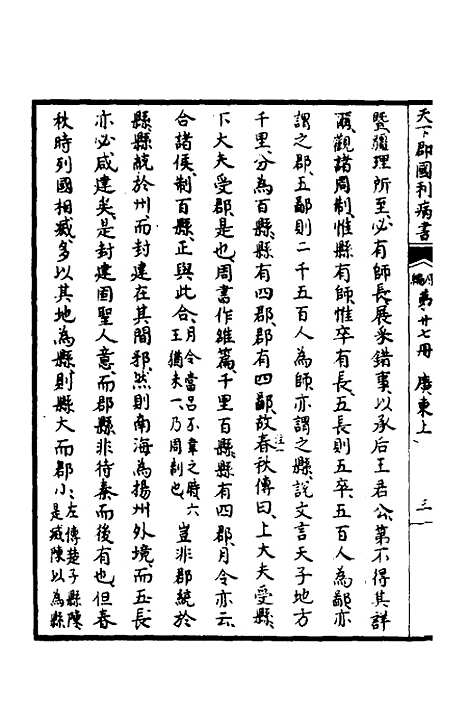 天下郡國利病書
第廿七册 廣東上
三
暨疆理所至必有師長展采錯事以承后王君公第不得其詳
爾觀諸周制惟縣有師惟卒有長五長則五卒五百人為鄙亦
謂之郡五鄙則二千五百人為師亦謂之縣說文言天子地方
千里分為百縣縣有四郡郡有四鄙故春秋傳曰上大夫受縣
注一
下大夫受郡是也周書作雒篇千里百縣縣有四郡月令亦云
合諸侯制百縣正與此合月令當呂不韋之時六
王猶未一乃周制也豈非郡統於
縣縣統於州而封建在其間邪然則南海為揚州外境而五長
亦必咸建矣是封建固聖人意而郡縣非待秦而後有也但春
秋時列國相滅多以其地為縣則縣大而郡小左傳楚子縣陳
是滅陳以為縣